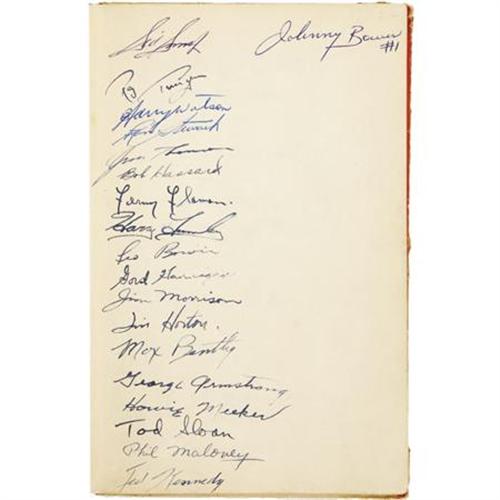 Sid Smith
Johnny Bower
#1
Harry Watson
Ron Stewart
Jim Thomson
Bob Hassard
Fern Flaman.
Harry Lumley
Leo Boivin
Gord Hannigan
Jim Morrison
Tim Horton.
Max Bentley
George Armstrong
Howie Meeker
Tod Sloan
Phil Maloney
Ted Kennedy